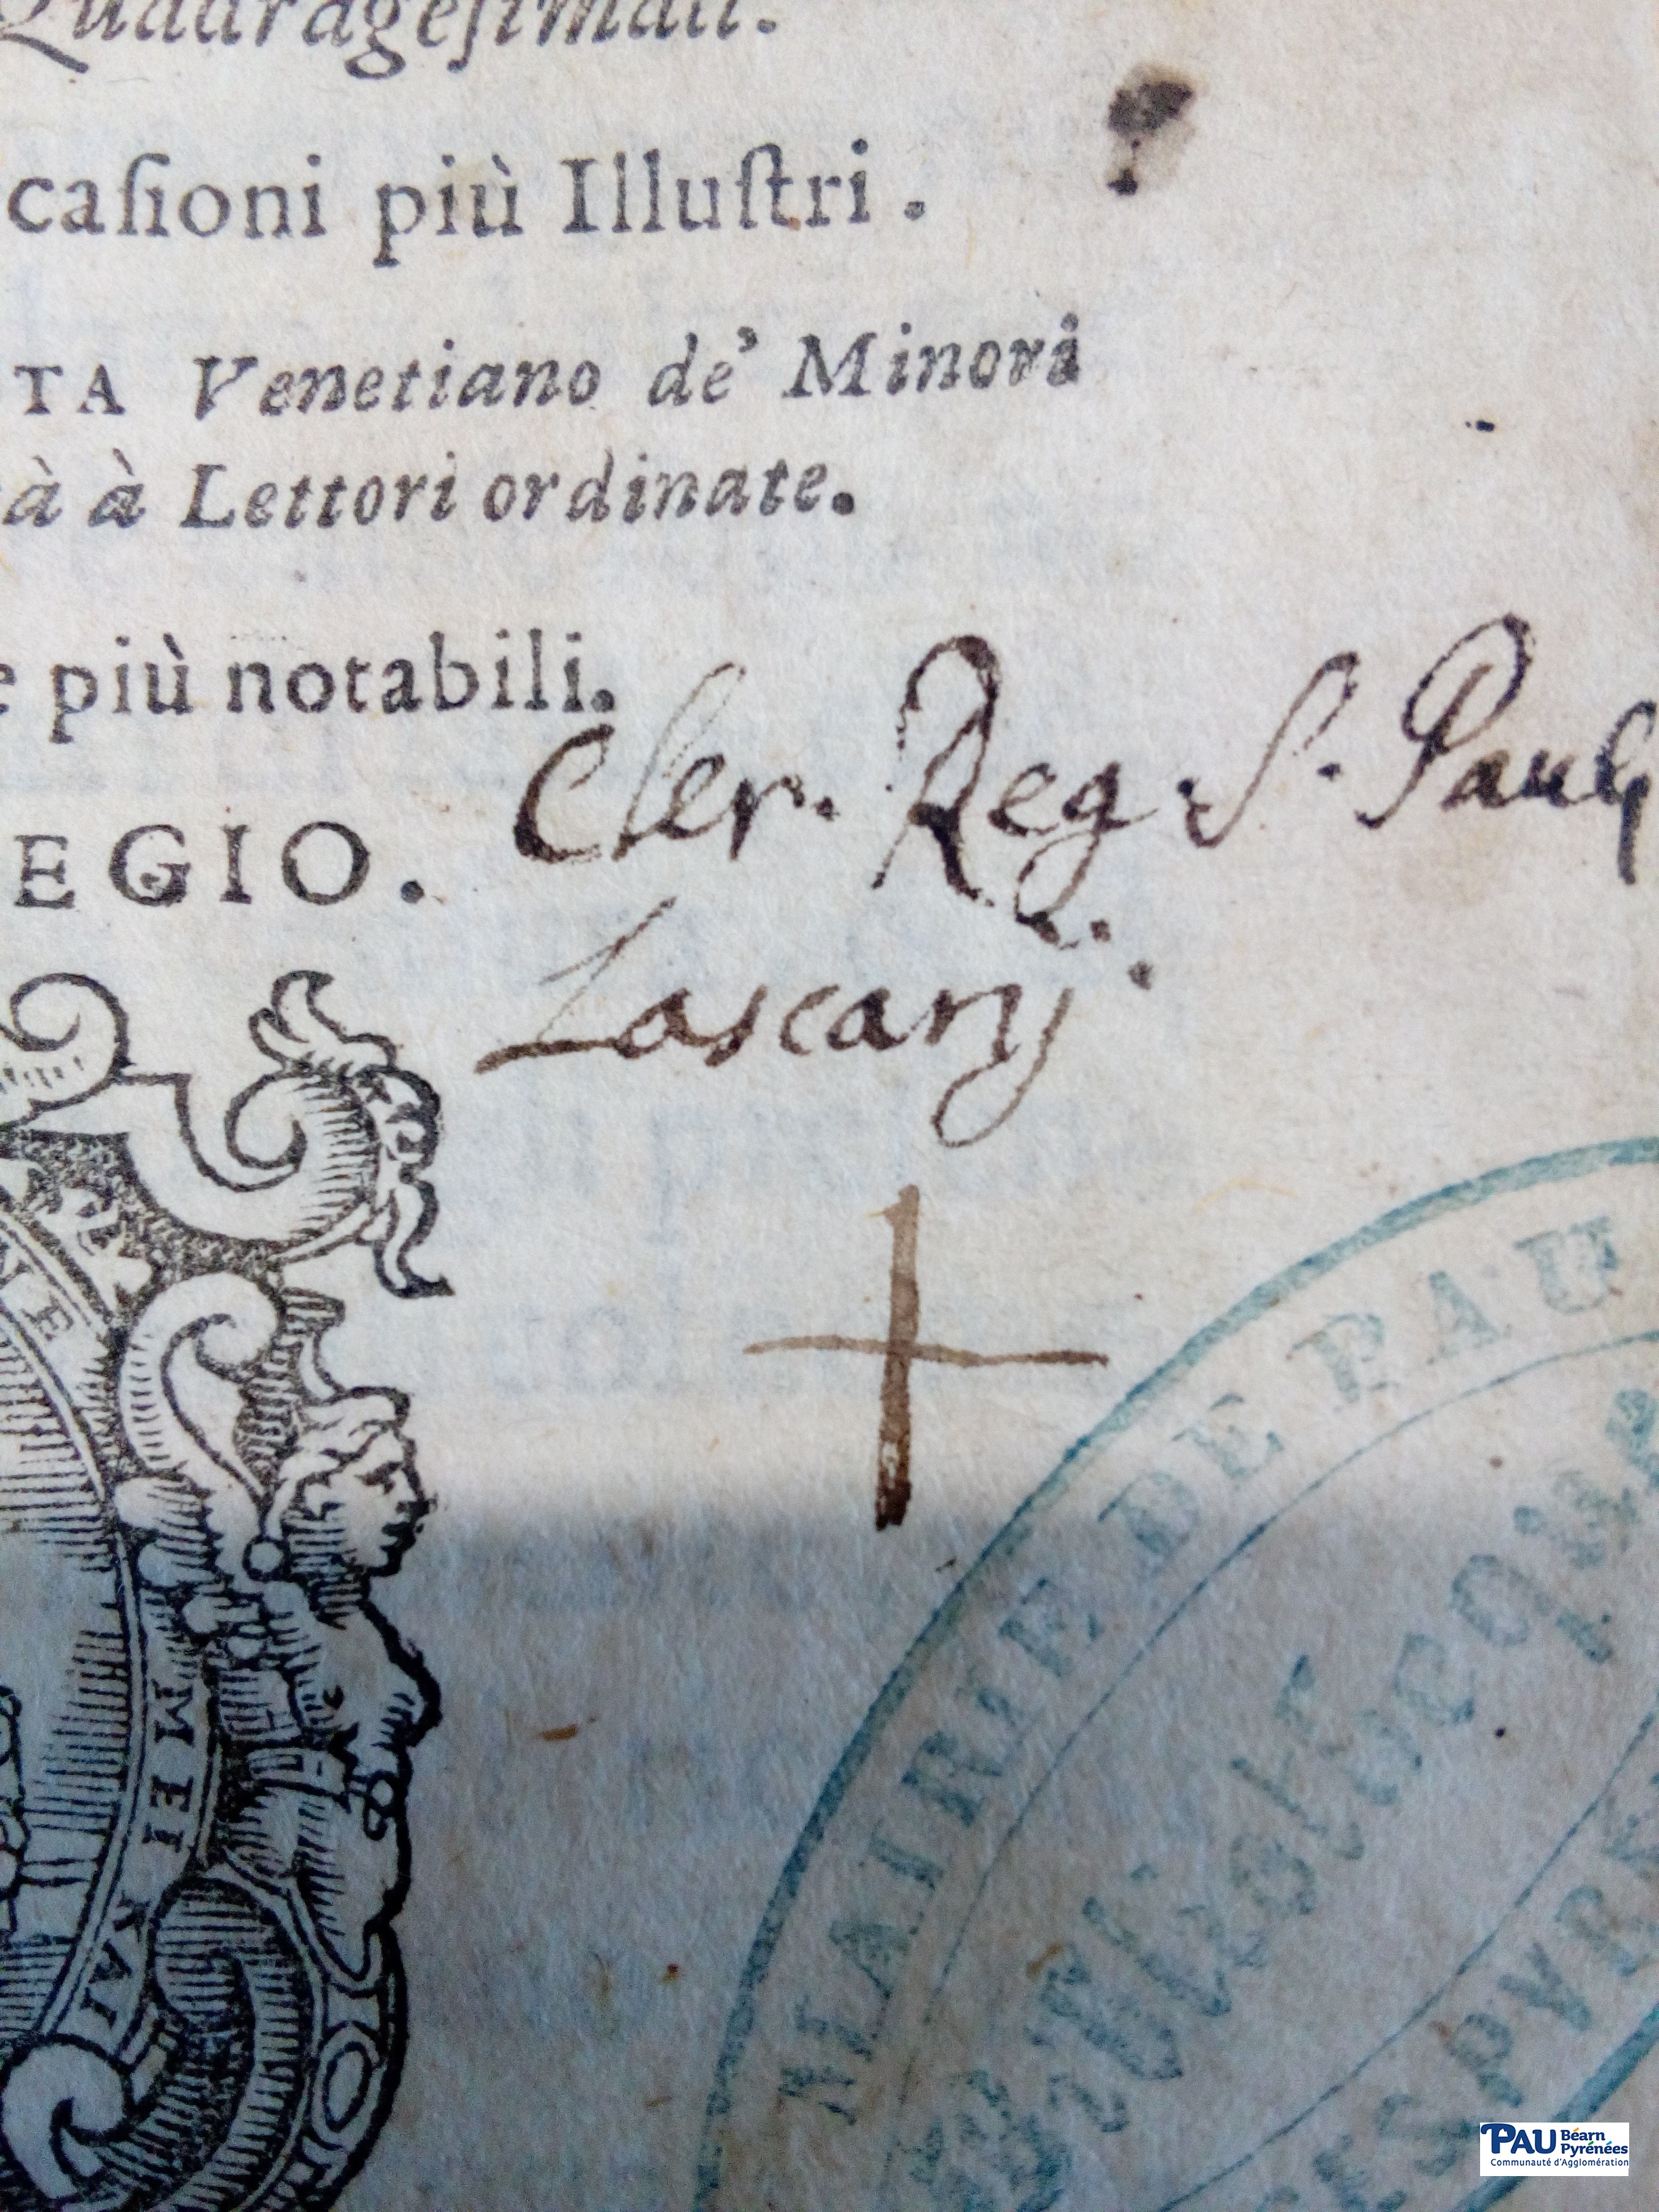 Quadragesimali.
casioni più Illustri.
TA Venetiano de' Minori
tà à Lettori ordinate.
e più notabili.
EGIO.
Cler. Reg. S. Pauli
Lascarij.
NE
MEI
MAIRIE DE PAU
Bibliothèque
PYRE
PAU Béarn
Pyrénées
Communauté d'Agglomération